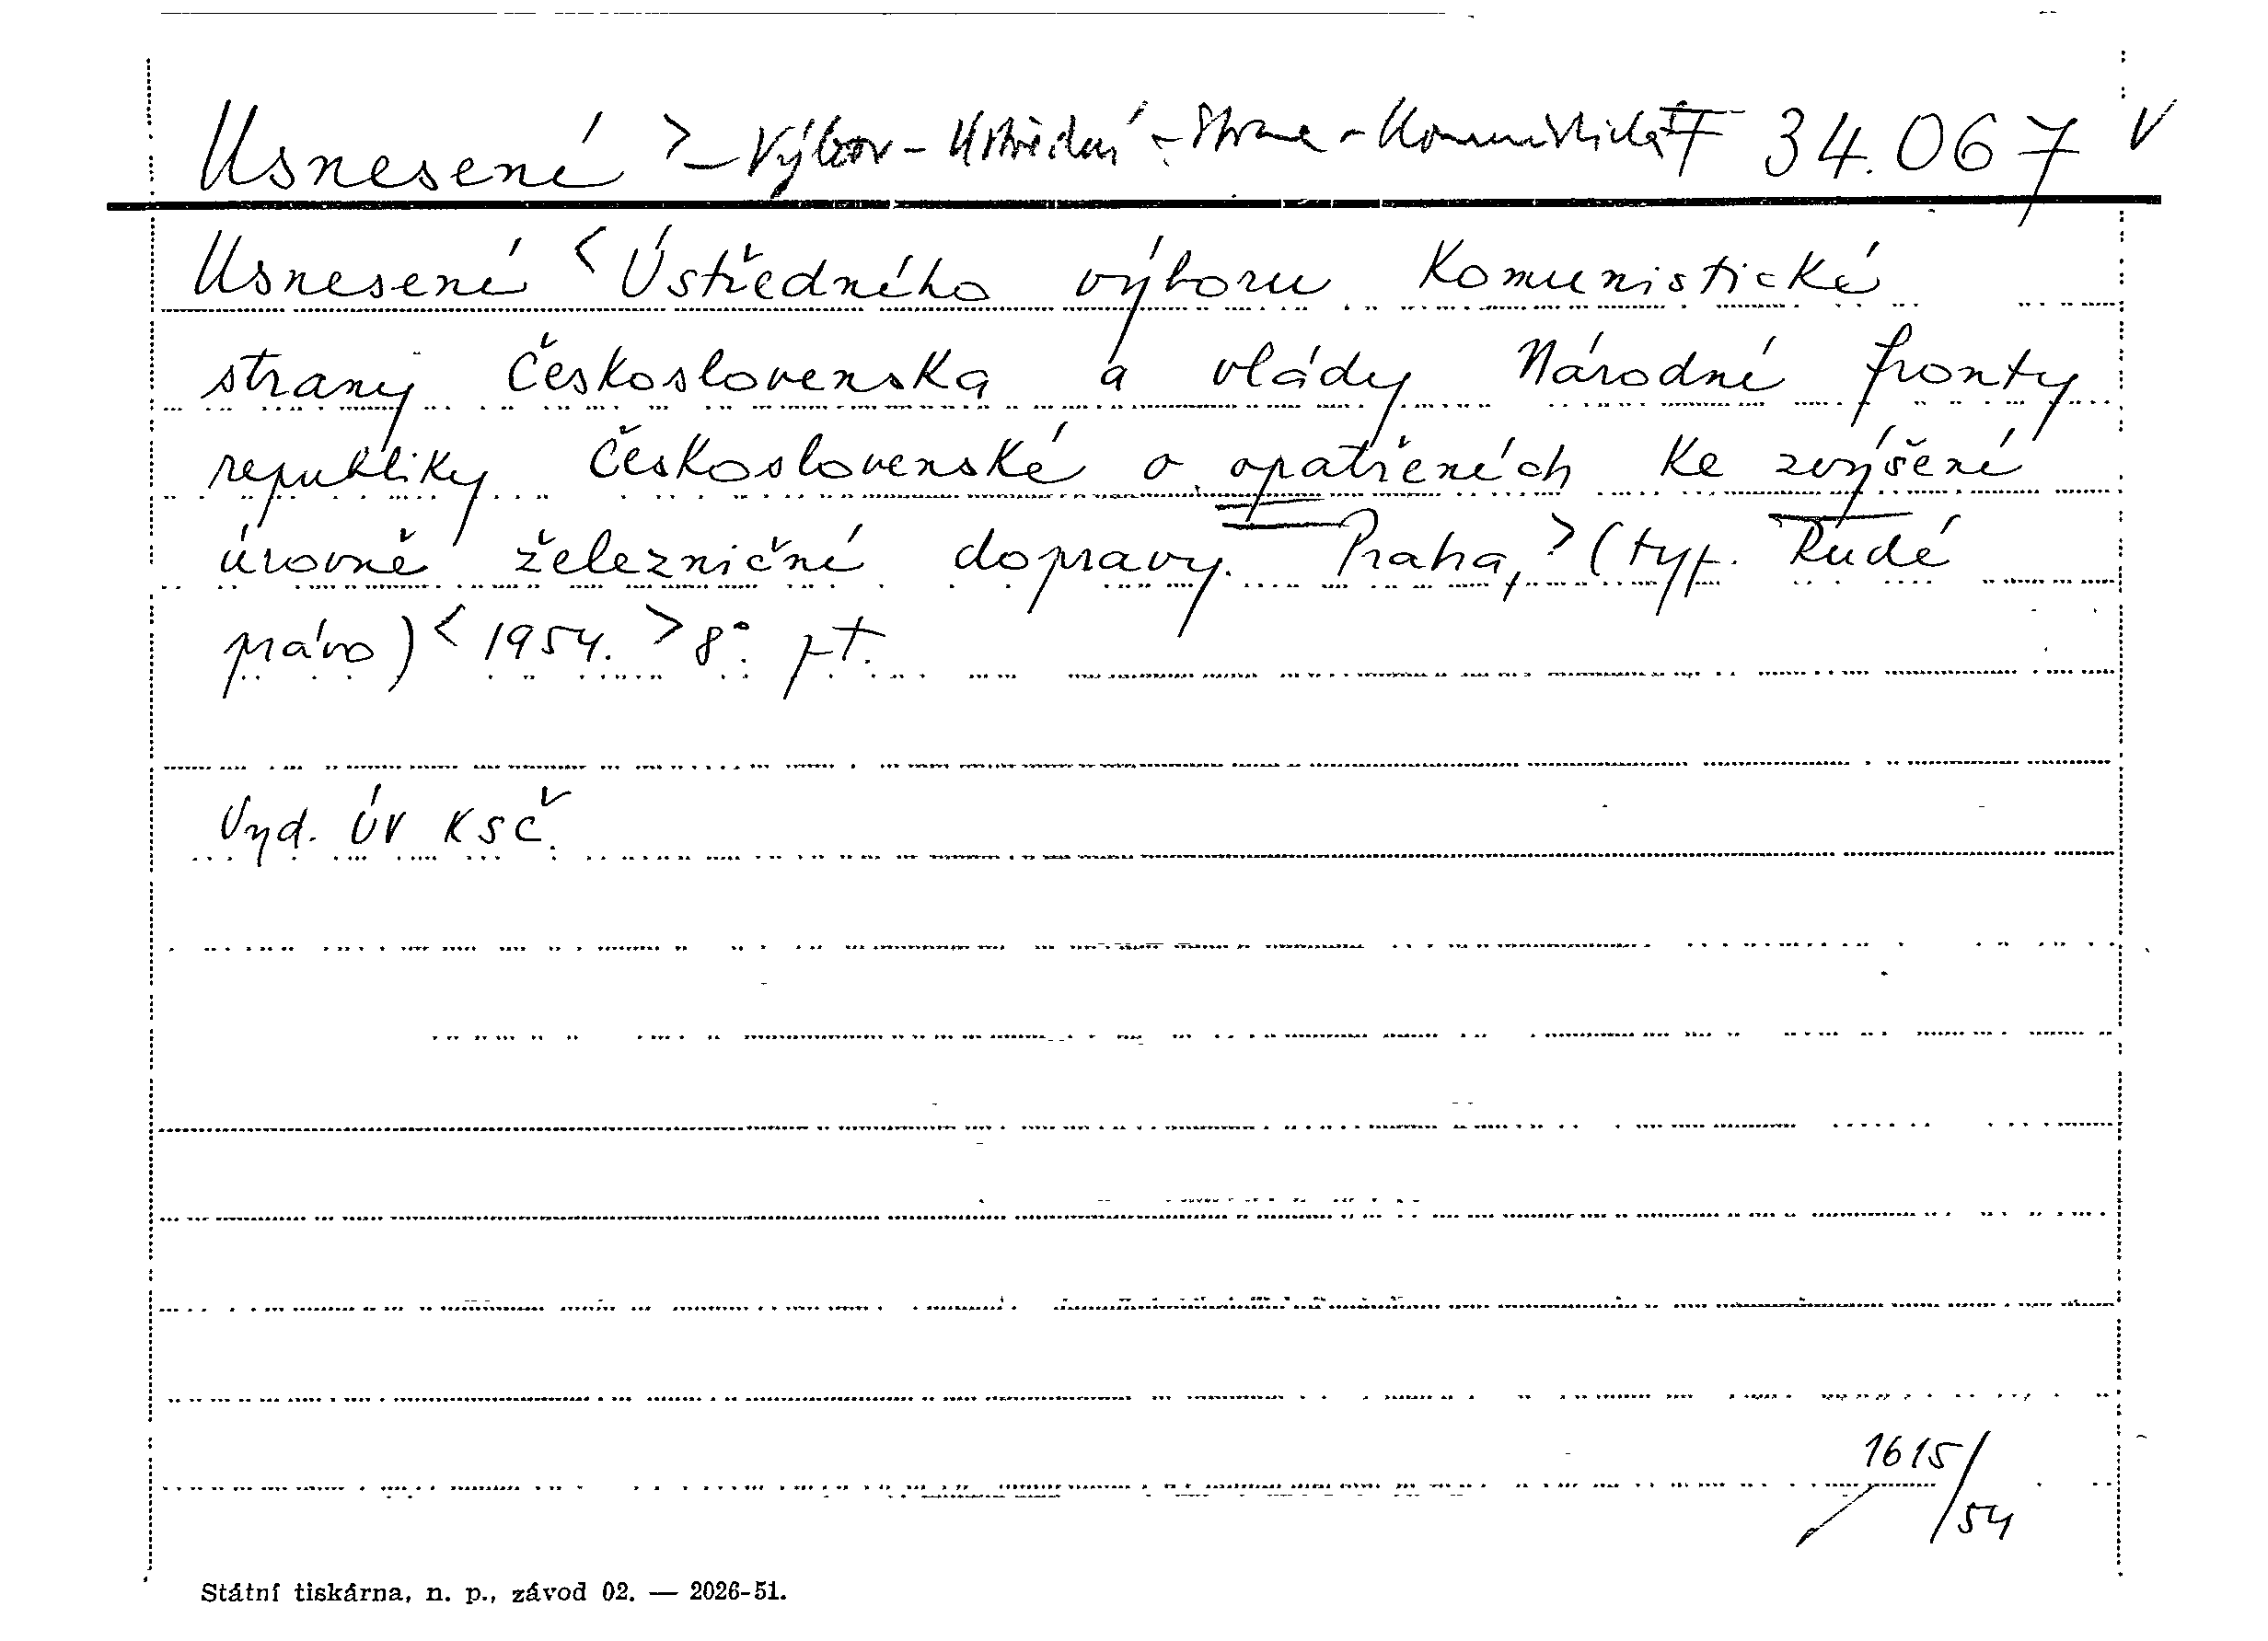 Usnesení >-Výbor-Ústřední-Strana-Komunistická
F 34.067 V
Usnesení < Ústředního výboru Komunistické
strany Československa a vlády Národní fronty
republiky Československé o opatřeních ke zvýšení
úrovně železniční dopravy. Praha,> (typ. Rudé
právo)< 1954. > 8°. pt.
Vyd. ÚV KSČ.
1615/
/54
Státní tiskárna, n. p., závod 02. — 2026-51.